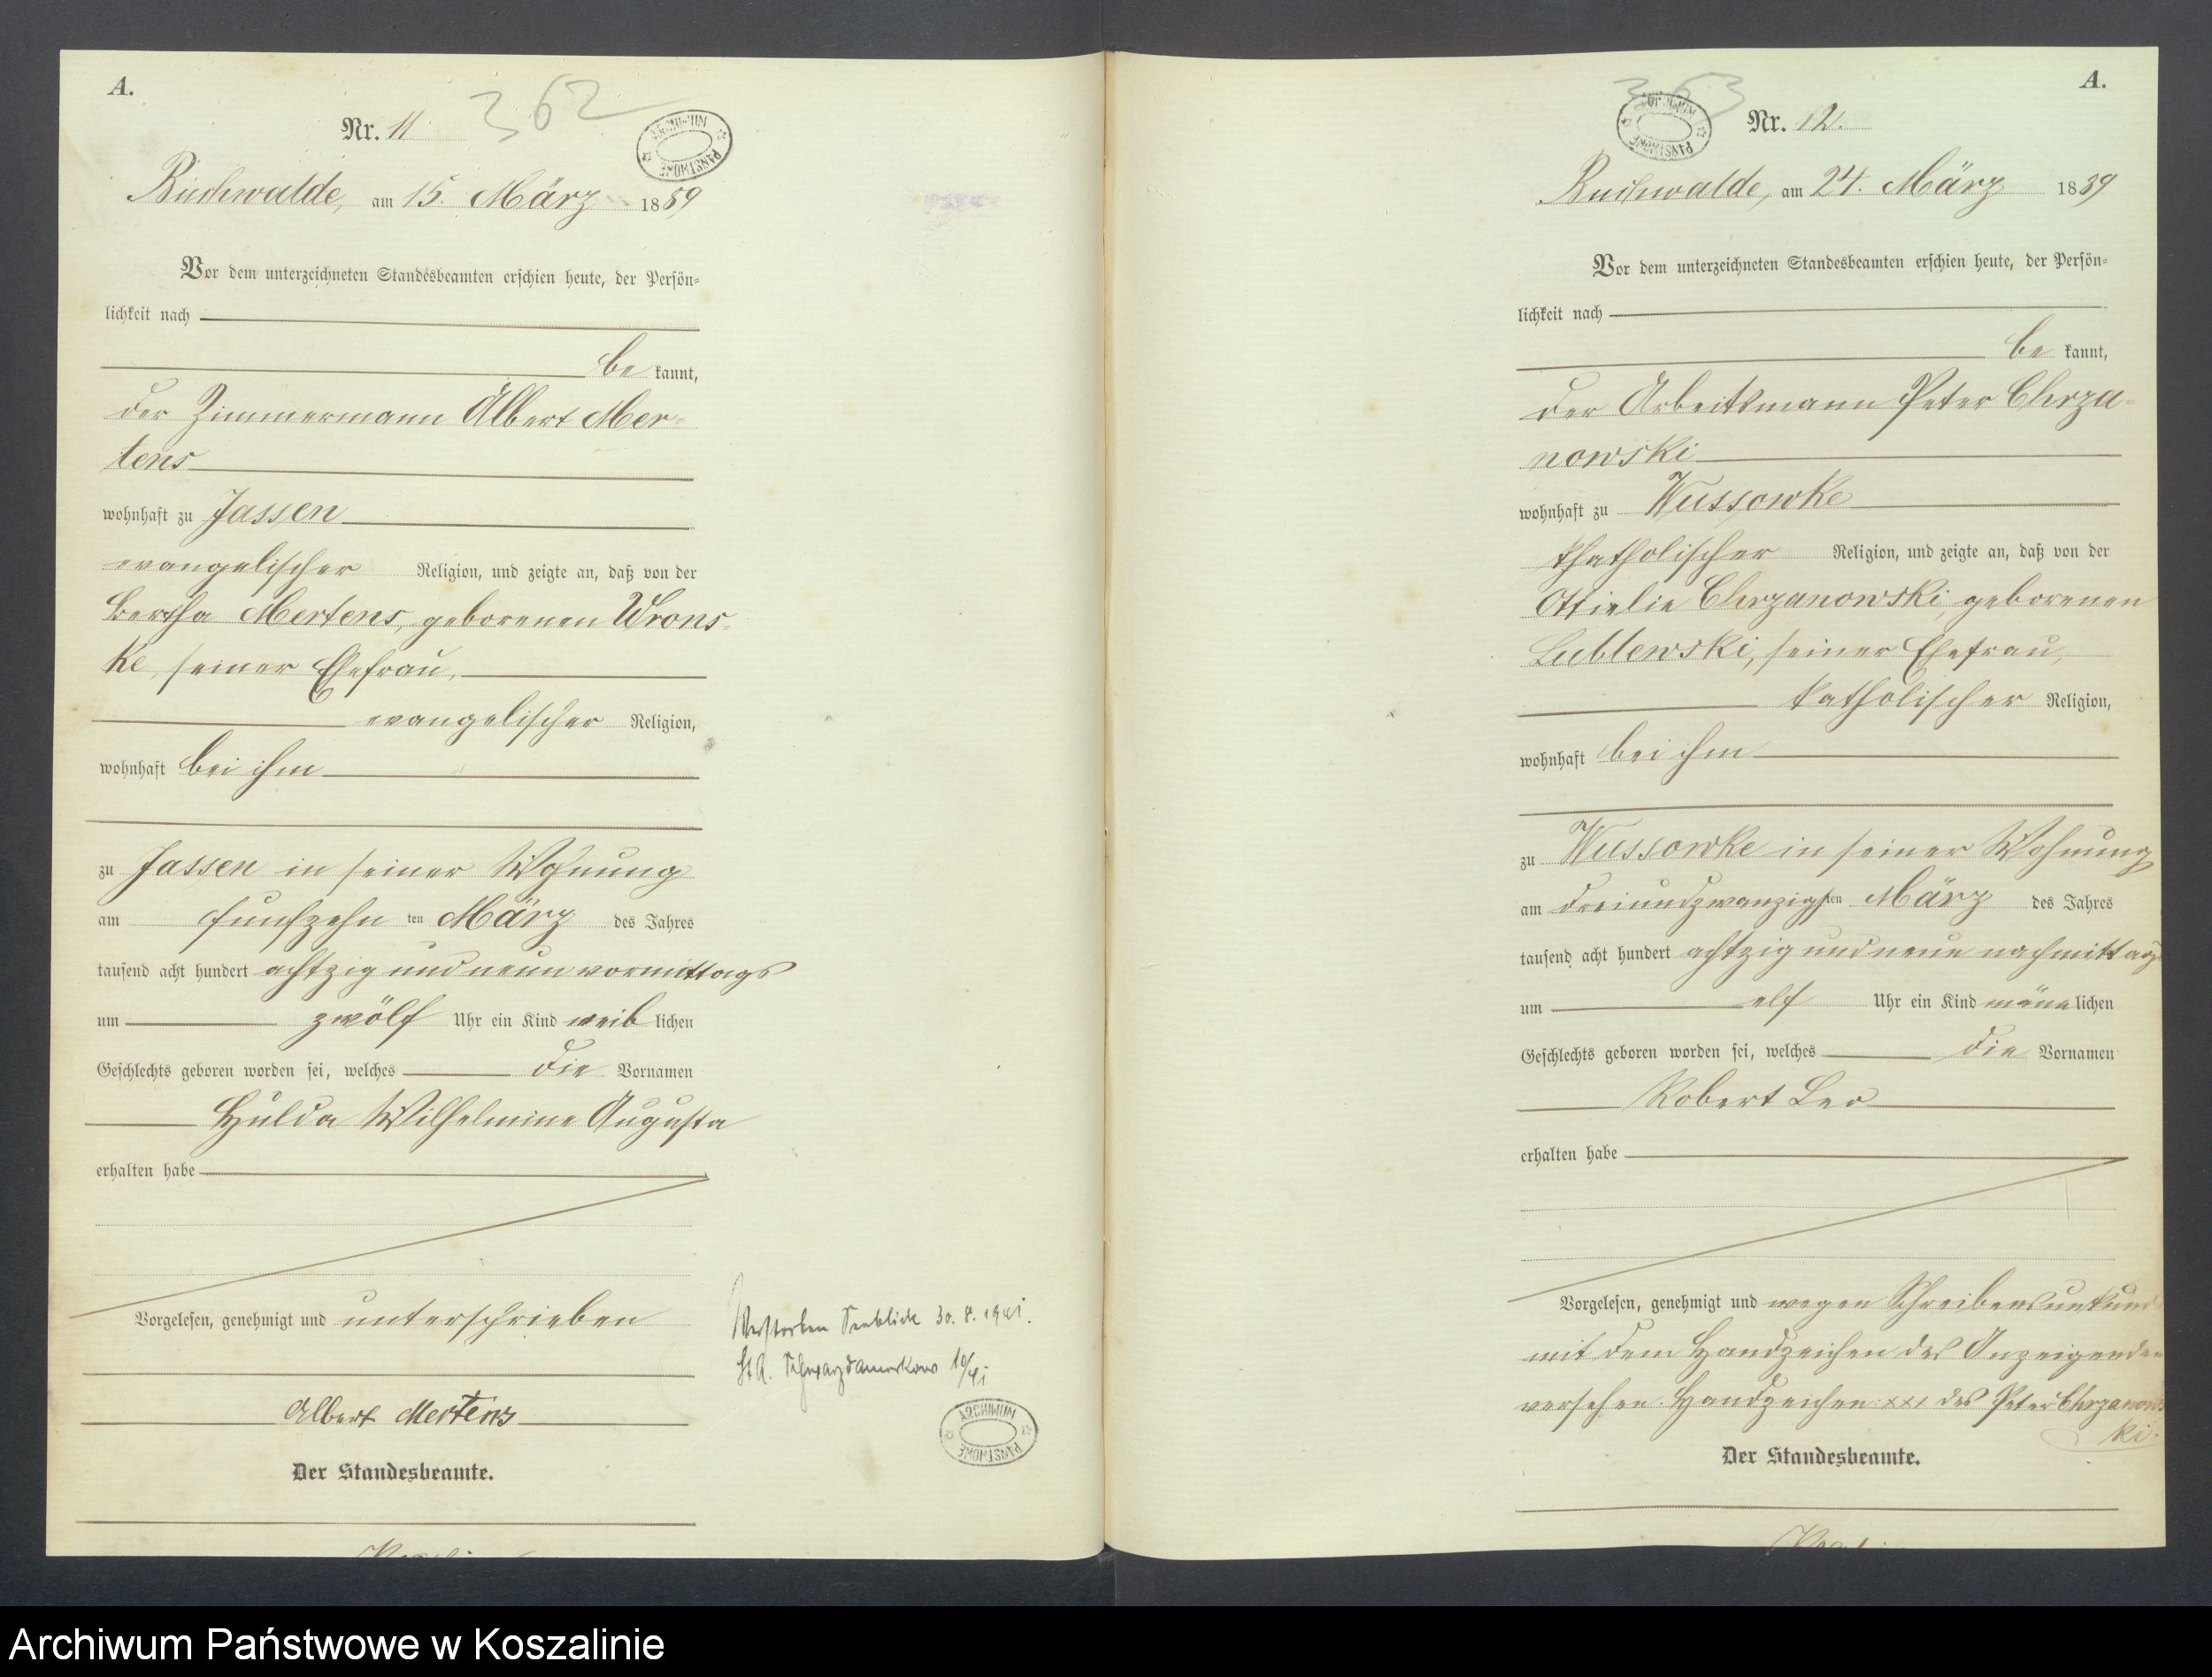 A.
362
Nr. 11
ARCHIWUM PAŃSTWOWE
Buchwalde, am 15. März 1889
Vor dem unterzeichneten Standesbeamten erschien heute, der Persön-
lichkeit nach
be kannt,
der Zimmermann Albert Mer-
tens
wohnhaft zu Jassen
evangelischer Religion, und zeigte an, daß von der
Bertha Mertens, geborenen Wrons-
ke, seiner Ehefrau,
evangelischer Religion,
wohnhaft bei ihm
zu Jassen in seiner Wohnung
am fünfzehn ten März des Jahres
tausend acht hundert achtzig und neun vormittags
um zwölf Uhr ein Kind weib lichen
Geschlechts geboren worden sei, welches die Vornamen
Hulda Wilhelmine Augusta
erhalten habe
Vorgelesen, genehmigt und unterschrieben
Albert Mertens
Der Standesbeamte.
Verstorben Seeblick 30. 8. 1941.
St.A. Schwarzdamerkow 10/41
ARCHIWUM PAŃSTWOWE
A.
363
Nr. 12.
ARCHIWUM PAŃSTWOWE
Buchwalde, am 24. März 1889
Vor dem unterzeichneten Standesbeamten erschien heute, der Persön-
lichkeit nach
be kannt,
der Arbeitsmann Peter Chrza-
nowski
wohnhaft zu Wussowke
khatholischer Religion, und zeigte an, daß von der
Ottielie Chrzanowski, geborenen
Lublewski, seiner Ehefrau,
katholischer Religion,
wohnhaft bei ihm
zu Wussowke in seiner Wohnung
am dreiundzwanzigsten März des Jahres
tausend acht hundert achtzig und neun nachmittags
um elf Uhr ein Kind männ lichen
Geschlechts geboren worden sei, welches die Vornamen
Robert Leo
erhalten habe
Vorgelesen, genehmigt und wegen Schreibensunkund
mit dem Handzeichen des Anzeigenden
versehen. Handzeichen: xxx des Peter Chrzanows
ki.
Der Standesbeamte.
Archiwum Państwowe w Koszalinie